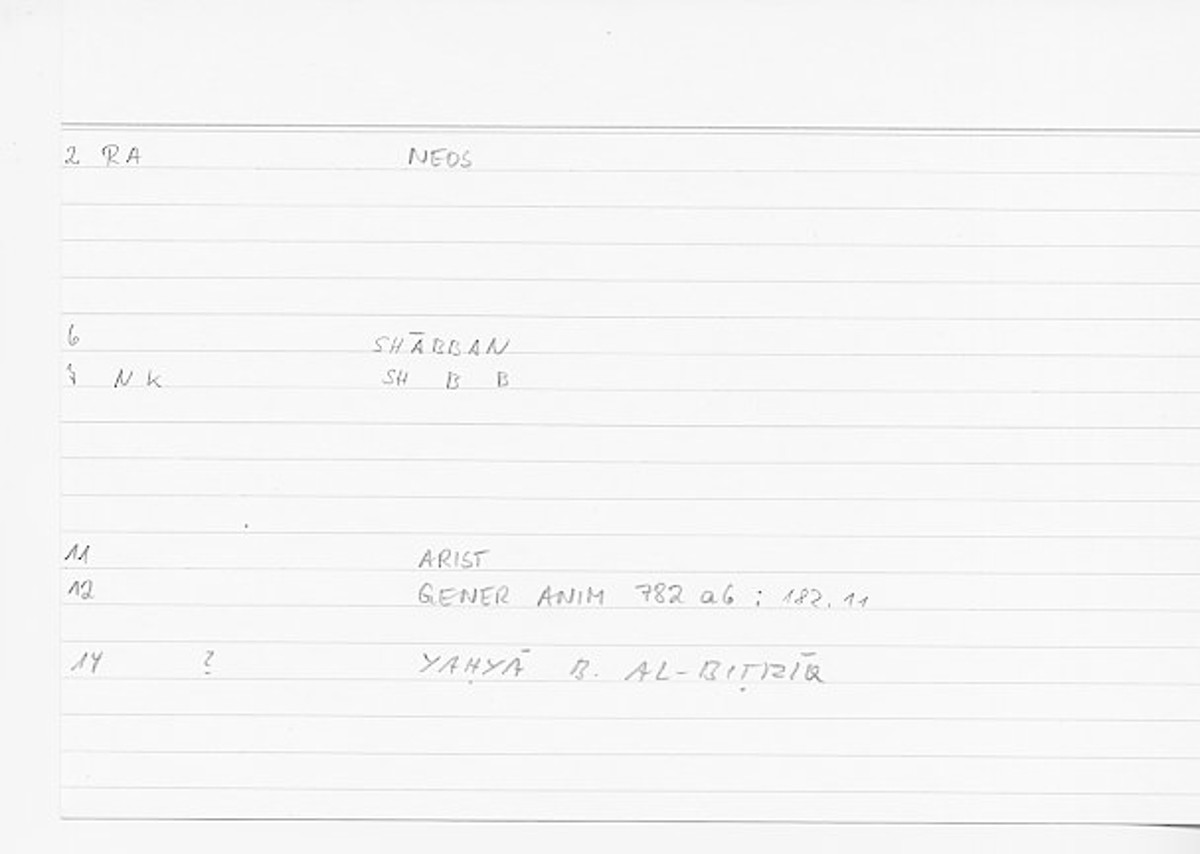 2 RA NEOS
6 SHĀBBAN
7 NK SH B B
11 ARIST
12 GENER ANIM 782 a6 : 182.11
14 ? YAḤYĀ B. AL-BIṬRĪQ